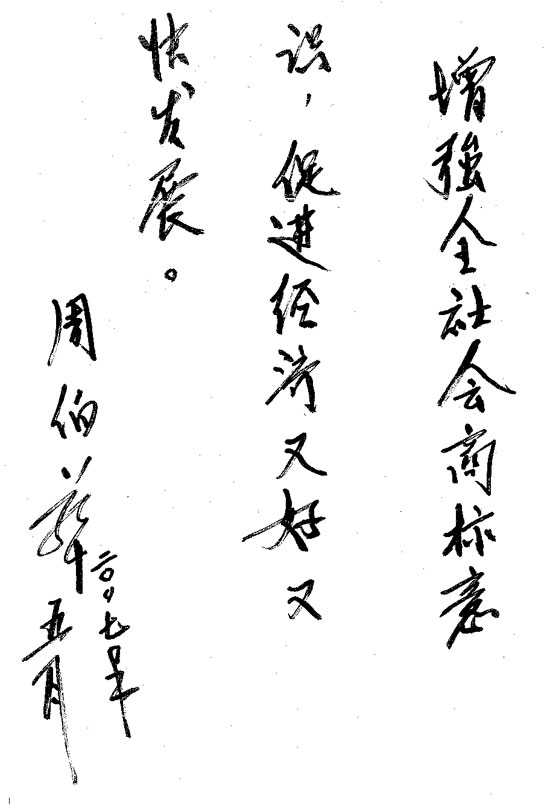 增强全社会商标意
识，促进经济又好又
快发展。
周伯华
二〇〇七年
五月